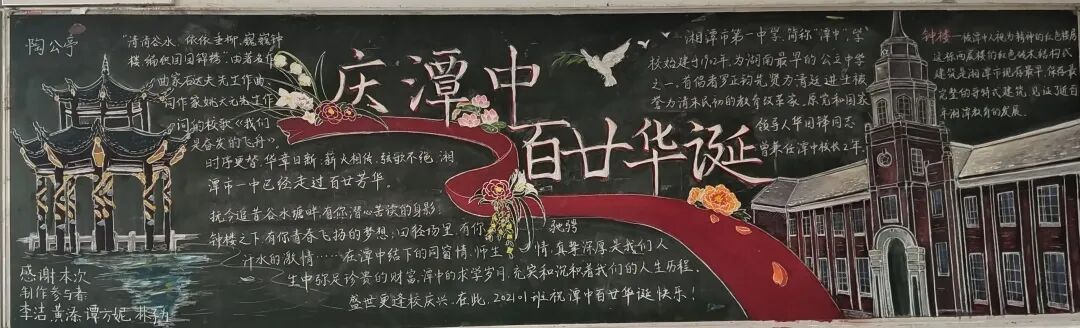 陶公亭
“清清谷水，依依垂柳，巍巍钟
楼,编织团团锦绣。”由著名作
曲家石夫先生作曲,
词作家姚大元先生作
词的校歌《我们
是奋发的飞舟》
时序更替,华章日新,薪火相传,弦歌不绝,湘
潭市一中已经走过百廿芳华。
抚今追昔谷水塘畔,有你潜心苦读的身影;
钟楼之下,有你青春飞扬的梦想;田径场里,有你 驰骋
汗水的激情……在潭中结下的同窗情、师生 情,真挚深厚,是我们人
生中弥足珍贵的财富,潭中的求学岁月,充实和沉积着我们的人生历程。
盛世更逢校庆兴,在此,202101班祝潭中百廿华诞快乐!
庆潭中
百廿华诞
湘潭市第一中学,简称“潭中”,学
校始建于1902年,为湖南最早的公立中学
之一。首倡者罗正钧先贤为清廷进士,被
誉为清末民初的教育改革家。原党和国家
领导人华国锋同志
曾兼任潭中校长2年。
钟楼——被潭中人视为精神的红色楼房
这栋两层楼的红色砖木结构式
建筑是湘潭市现存最早,保存最
完整的哥特式建筑,见证了近百
年湘潭教育的发展。
感谢本次
制作参与者:
李洁 黄添 谭方妮 林